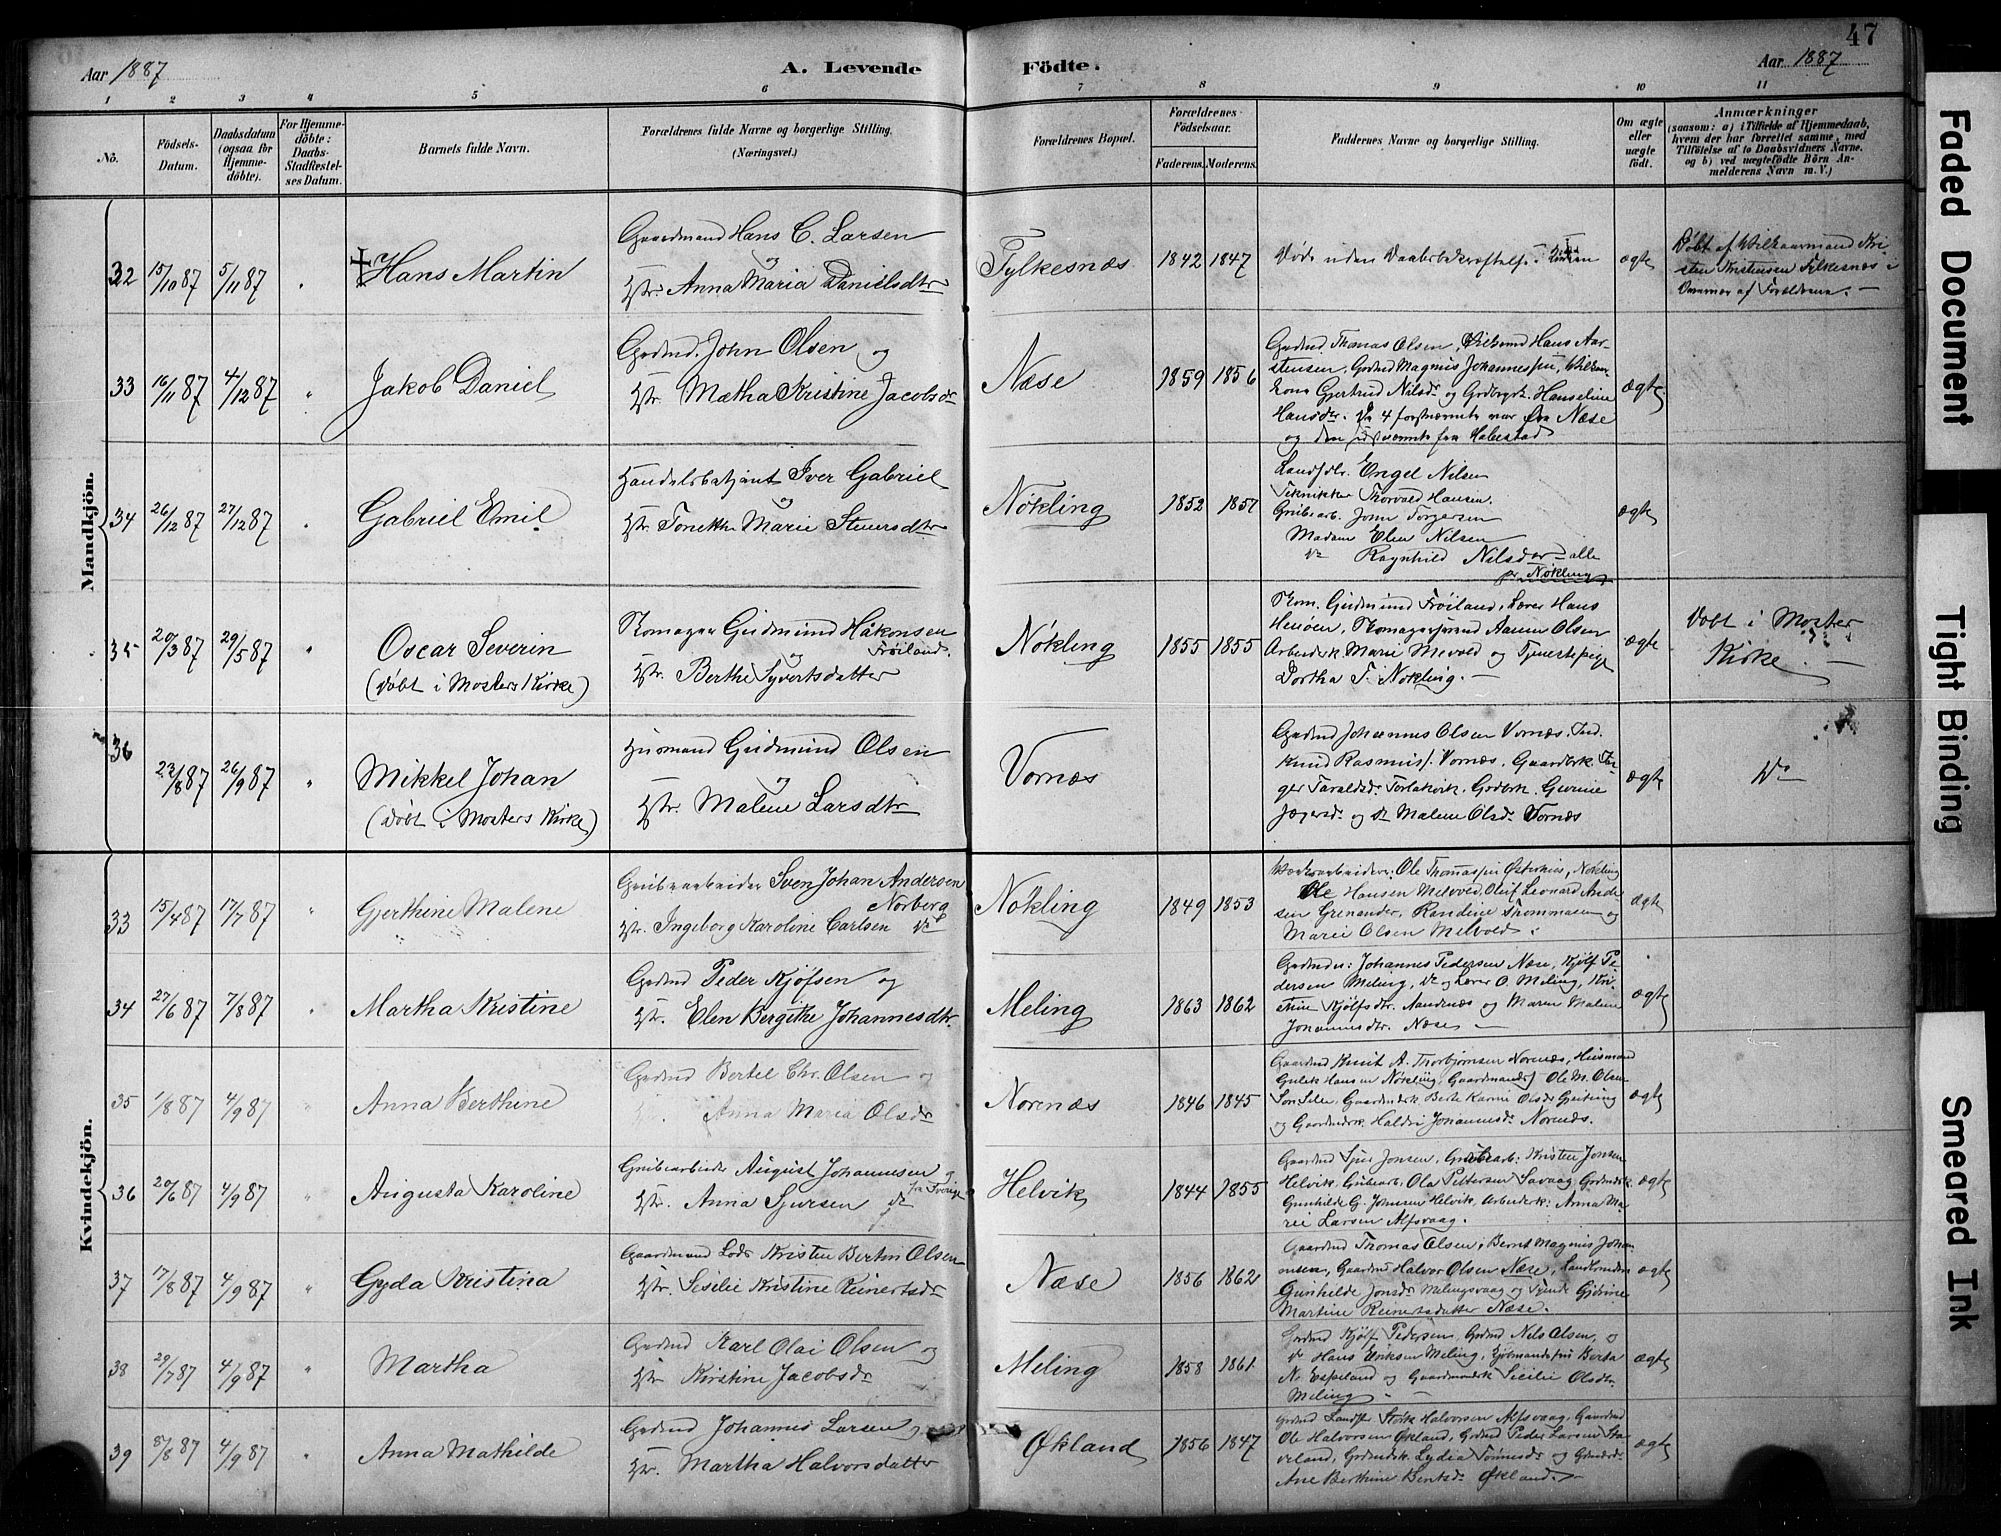 47
Aar 1887
A. Levende
Födte.
Aar 1887
1 2 3 4 5 6 7 8 9 10 11
No.
Födsels-
Datum.
Daabsdatum
(ogsaa for
Hjemme-
döbte).
For Hjemme-
döbte:
Daabs-
Stadfæstel-
ses Datum.
Barnets fulde Navn.
Forældrenes fulde Navne og borgerlige Stilling.
(Næringsvei.)
Forældrenes Bopæl.
Forældrenes
Födselsaar.
Faderens. Moderens.
Faddernes Navne og borgerlige Stilling.
Om ægte
eller
uægte
födt.
Anmærkninger
(saasom: a) i Tilfælde af Hjemmedaab,
hvem der har forrettet samme, med
Tilföielse af to Daabsvidners Navne.
og b) ved uægtefödte Börn An-
melderens Navn m. V.)
Mandkjön.
32 15/10 87 5/11 87 " Hans Martin
Gaardmand Hans C. Larsen
og
Hstr. Anna Maria Danielsdtr
Fylkesnæs 1842 1847
Døde uden Daabsbekræftelse i Kirken
ægte
Døbt af Vilkaarmand Kri-
sten Kristensen Fylkesnæs i
Nærvær af Forældrene. —
33 16/11 87 4/12 87 " Jakob Daniel
Grdmd. John Olsen og
Hstr. Mætha Kristine Jacobsdr
Næse 1859 1856
Grdmd. Thomas Olsen, Hans Aar-
stensen, Grdmd Magnus Johannessen,
kone Gjertrud Nilsdr og Hanseline
Hansdr. De 4 førstnævnte var fra Næse
og den fra
ægte
34 26/12 87 27/12 87 " Gabriel Emil
Handelsbetjent Iver Gabriel
og
Hstr. Marie
Nøkling 1852 1857
Landhdlr. Engel Nilsen
Tekniker Thorvald Hansen.
Grubearb. John Torgersen
Madam Elen Nilsen
do Ragnhild Nilsdr — alle
Nøkling
ægte
35 20/3 87 29/5 87 " Oscar Severin
(Døbt i Mosters Kirke)
Gudmund Håkonsen
Frøiland.
og
Hstr. Berthe Syvertsdatter
Nøkling 1855 1855
Gudmund Frøiland, Lærer Hans
Olsen
Arbeiderk. Marie Melvold og Tjenestepige
Dortha T. Nøkling. —
ægte
Døbt i Moster
Kirke. —
36 23/8 87 26/9 87 " Mikkel Johan
(Døbt i Mosters Kirke)
Husmand Gudmund Olsen
og
Hstr. Malene Larsdtr
Vornæs
Grdmd Johannes Olsen Vornæs,
Knud Rasmuss. Vornæs, Gaardbrk.
og do Malene Olsdr Vornæs
ægte
do
Kvindekjön.
33 15/4 87 17/7 87 " Gjerthine Malene
Grubearbeider Sven Johan Andersen
Norberg
Hstr. Ingeborg Karoline Carlsen do
Nøkling 1849 1853
Ole Nøkling
Ole Hansen Melvold, Oluf Leonard Ander-
sen Grenander, Randine Thommasen og
Marie Olsen Melvold.
ægte
34 27/6 87 7/8 87 " Martha Kristine
Grdmd Peder Kjølfsen og
Hstr. Elen Bergithe Johannesdtr.
Meling 1863 1862
Grdmdr: Johannes Pedersen Næse, Kjølf Pe-
dersen Meling, do og Lærer O. Meling, Kri-
stine Kjølfsdtr. og Maren Malene
Johannesdtr. Næse —
ægte
35 1/8 87 4/9 87 " Anna Berthine
Grdmd Bertel Chr. Olsen og
Anna Maria Olsdr
Norenæs 1846 1845
Gaardmd Knut A. Thorbjørnsen Norenæs, Husmand
Gulik Hansen Nøkling, Gaardmands Ole M. Olsen
Gaardmdk Berte Karine Olsdr
og Gaardmdsk. Haldri Johannesdr Norenæs.
ægte
36 20/6 87 4/9 87 " Augusta Karoline
Grubearbeider August Johannesen og
Hstr. Anna Sjursen do
Helvik 1844 1855
Gaardmd Jonsen, Grubearb: Kristen Jonsen
Helvik, Grubearb. Ola Pettersen
Gunhilde G. Johnsen Helvik, Arbeiderk: Anna Ma-
rei Larsen Alfsvaag.
ægte
37 17/8 87 4/9 87 " Gyda Kristina
Gaardmand Lods Kristen Bertin Olsen
Hstr. Sesilie Kristine Reinertsdr
Næse 1856 1862
Gaardmd Thomas Olsen, Bernt Magnus Johan-
nesen, Gaardmd Halvor Olsen Næse,
Gunhilde Jonsdr Melingsvaag og
Martine Reinertsdatter Næse.
ægte
38 29/7 87 4/9 87 " Martha
Grdmd Karl Olai Olsen og
Hstr Kirstine Jacobsdr
Meling 1858 1861
Grdmd Kjølf Pedersen, Grdmd Nils Olsen, og
do Hans Eriksen Meling, Berta
N. Espeland og Gaardmandsk Sicilie Olsdtr
Meling —
ægte
39 8/8 87 4/9 87 " Anna Mathilde
Grdmd Johannes Larsen og
Hstr. Martha Halvorsdatter
Økland 1856 1847
Halvorsen Alfsvaag, Gaardmd
Ole Halvorsen Økland, Grdmd Peder Larsen
Lydia Tønnesdr og
Ane Berthine Berntsdr Økland. —
ægte
Faded Document
Tight Binding
Smeared Ink